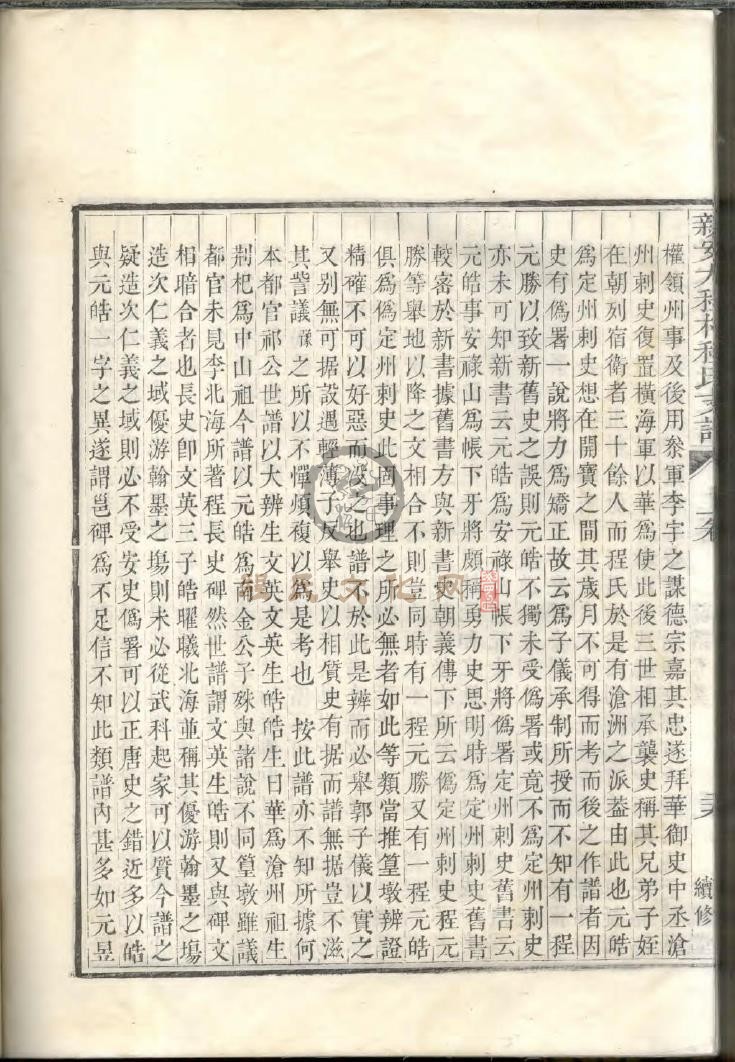 權領州事及後用叅軍李宇之謀德宗嘉其忠遂拜華御史中丞滄
州刺史復置橫海軍以華爲使此後三世相承襲史稱其兄弟子姪
在朝列宿衛者三十餘人而程氏於是有滄洲之派葢由此也元皓
爲定州刺史想在開寶之間其歲月不可得而考而後之作譜者因
史有僞署一說將力爲矯正故云爲子儀承制所授而不知有一程
元勝以致新舊史之誤則元皓不獨未受僞署或竟不爲定州刺史
亦未可知新書云元皓爲安祿山帳下牙將僞署定州刺史舊書云
元皓事安祿山爲帳下牙將頗稱勇力史思明時爲定州刺史舊書
較密於新書據舊書方與新書史朝義傳下所云僞定州刺史程元
勝等舉地以降之文相合不則豈同時有一程元勝又有一程元皓
俱爲僞定州刺史此固事理之所必無者如此等類當推篁墩辨證
精確不可以好惡而沒之也譜不於此是辨而必舉郭子儀以實之
又別無可据設遇輕薄子反舉史以相質史有据而譜無据豈不滋
其訾議之所以不憚煩複以爲是考也 按此譜亦不知所據何
本都官祁公世譜以大辨生文英文英生皓皓生日華爲滄州祖生
荆杞爲中山祖今譜以元皓爲南金公子殊與諸說不同篁墩雖議
都官未見李北海所著程長史碑然世譜謂文英生皓則又與碑文
相暗合者也長史卽文英三子皓曜曦北海並稱其優游翰墨之塲
造次仁義之域優游翰墨之塲則未必從武科起家可以質今譜之
疑造次仁義之域則必不受安史僞署可以正唐史之錯近多以皓
與元皓一字之異遂謂邕碑爲不足信不知此類譜內甚多如元昱
續修